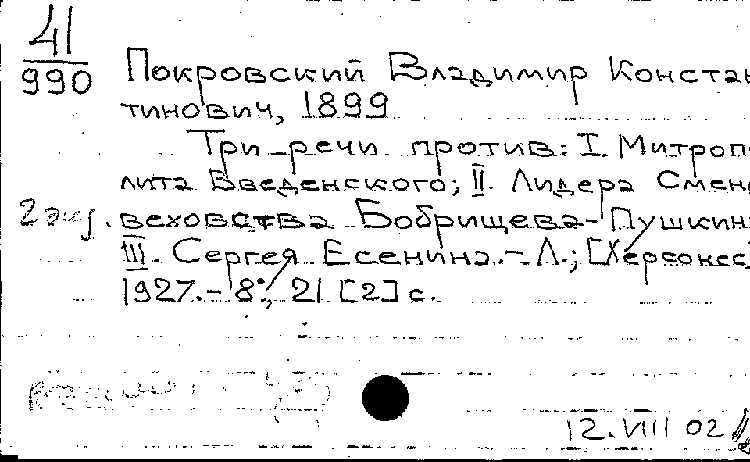 41
990
Покровский Владимир Констан
тинович, 1899
Три речи против: I. Митропо
лита Введенского; II. Лидера Смено
2 экз. веховства Бобрищева-Пушкина
III. Сергея Есенина. - Л.; [Херсонес]
1927. - 8°, 21 [2] с.
12. VIII 02